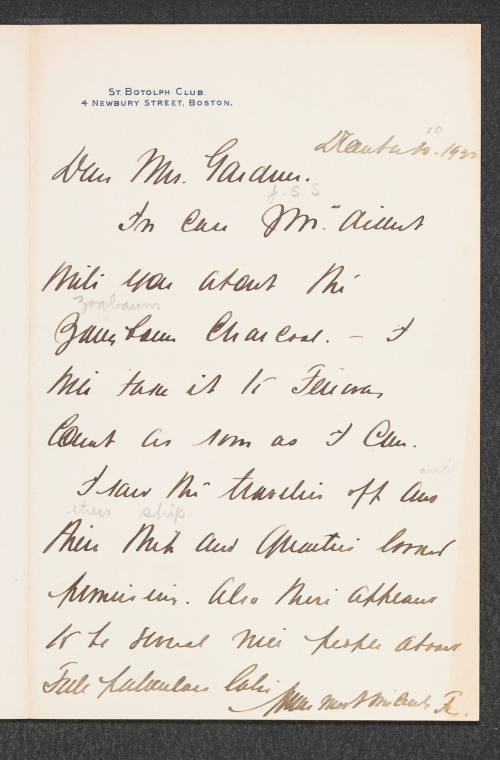 ST. BOTOLPH CLUB.
4 NEWBURY STREET, BOSTON.
10
1922
Dear Mrs. Gardner.
J.S.S
In case Mr. didnt
write you about the
Zogbaum
Zogbaum Charcoal. – I
will take it to Fenway
Court as soon as I can.
and
I saw the travelers off and
their ship
their ship and quarters looked
promising. Also there appears
to be several nice people aboard
Full particulars later
Yours most sincerely